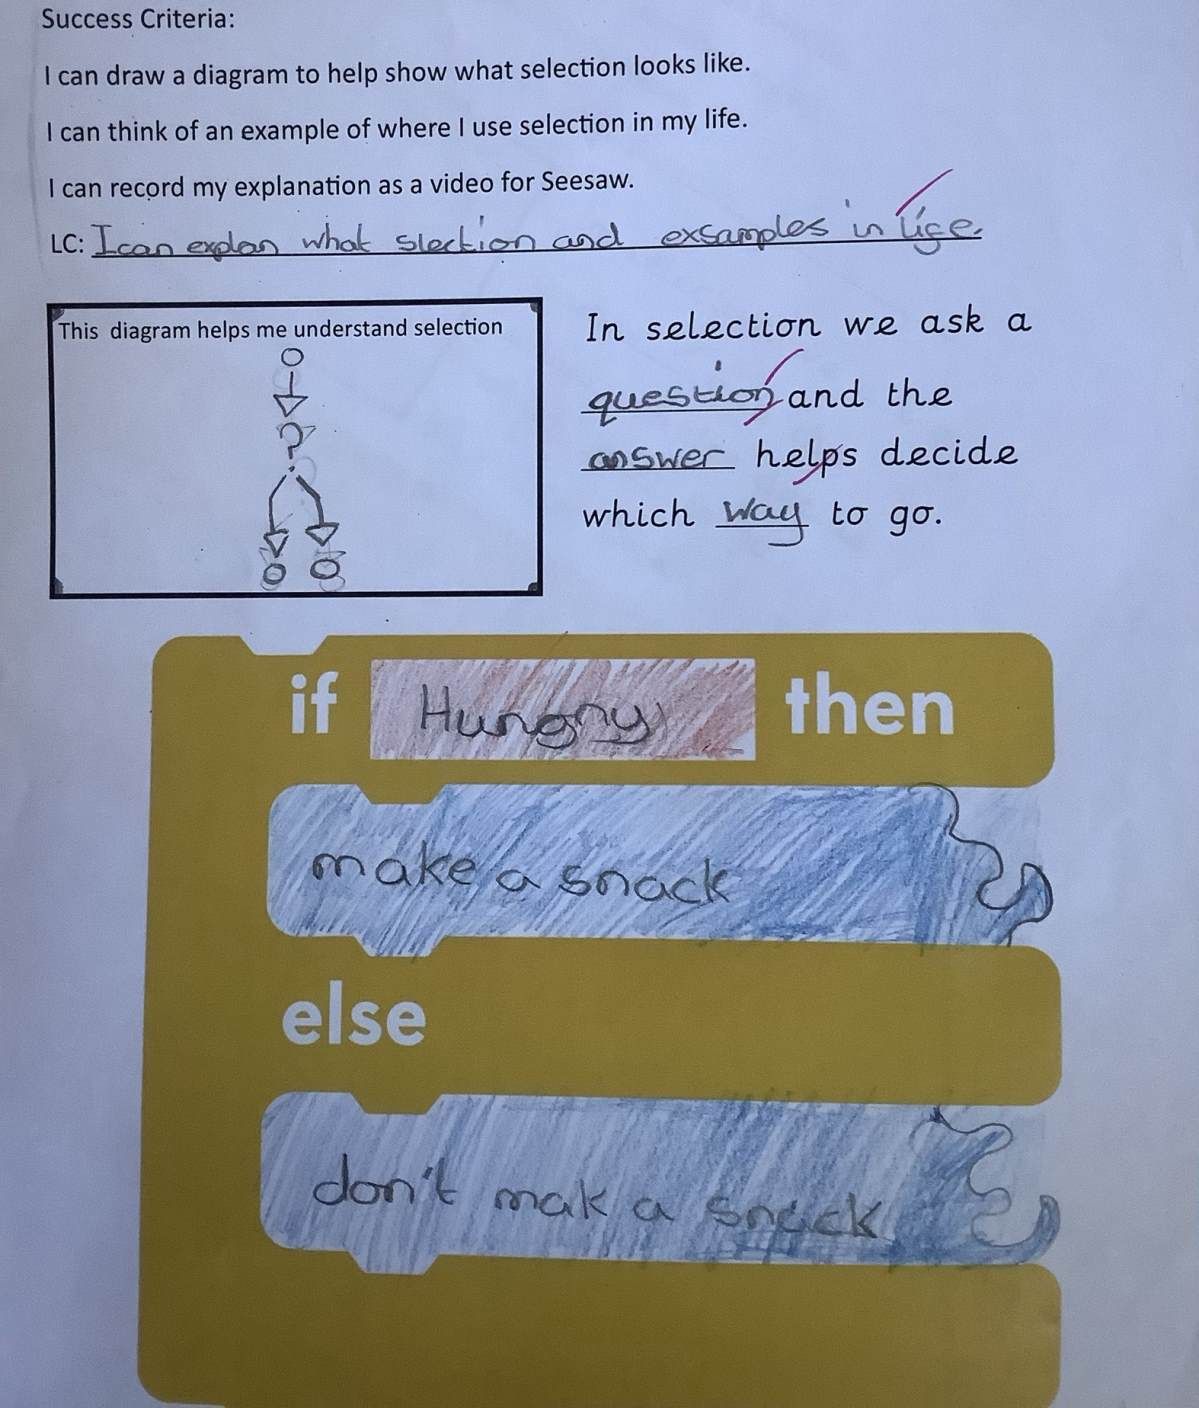 Success Criteria:
I can draw a diagram to help show what selection looks like.
I can think of an example of where I use selection in my life.
I can record my explanation as a video for Seesaw.
LC: I can explan what slection and exsamples in lige.
This diagram helps me understand selection
?
In selection we ask a
question and the
answer helps decide
which way to go.
if Hungry then
make a snack
else
don't mak a snack